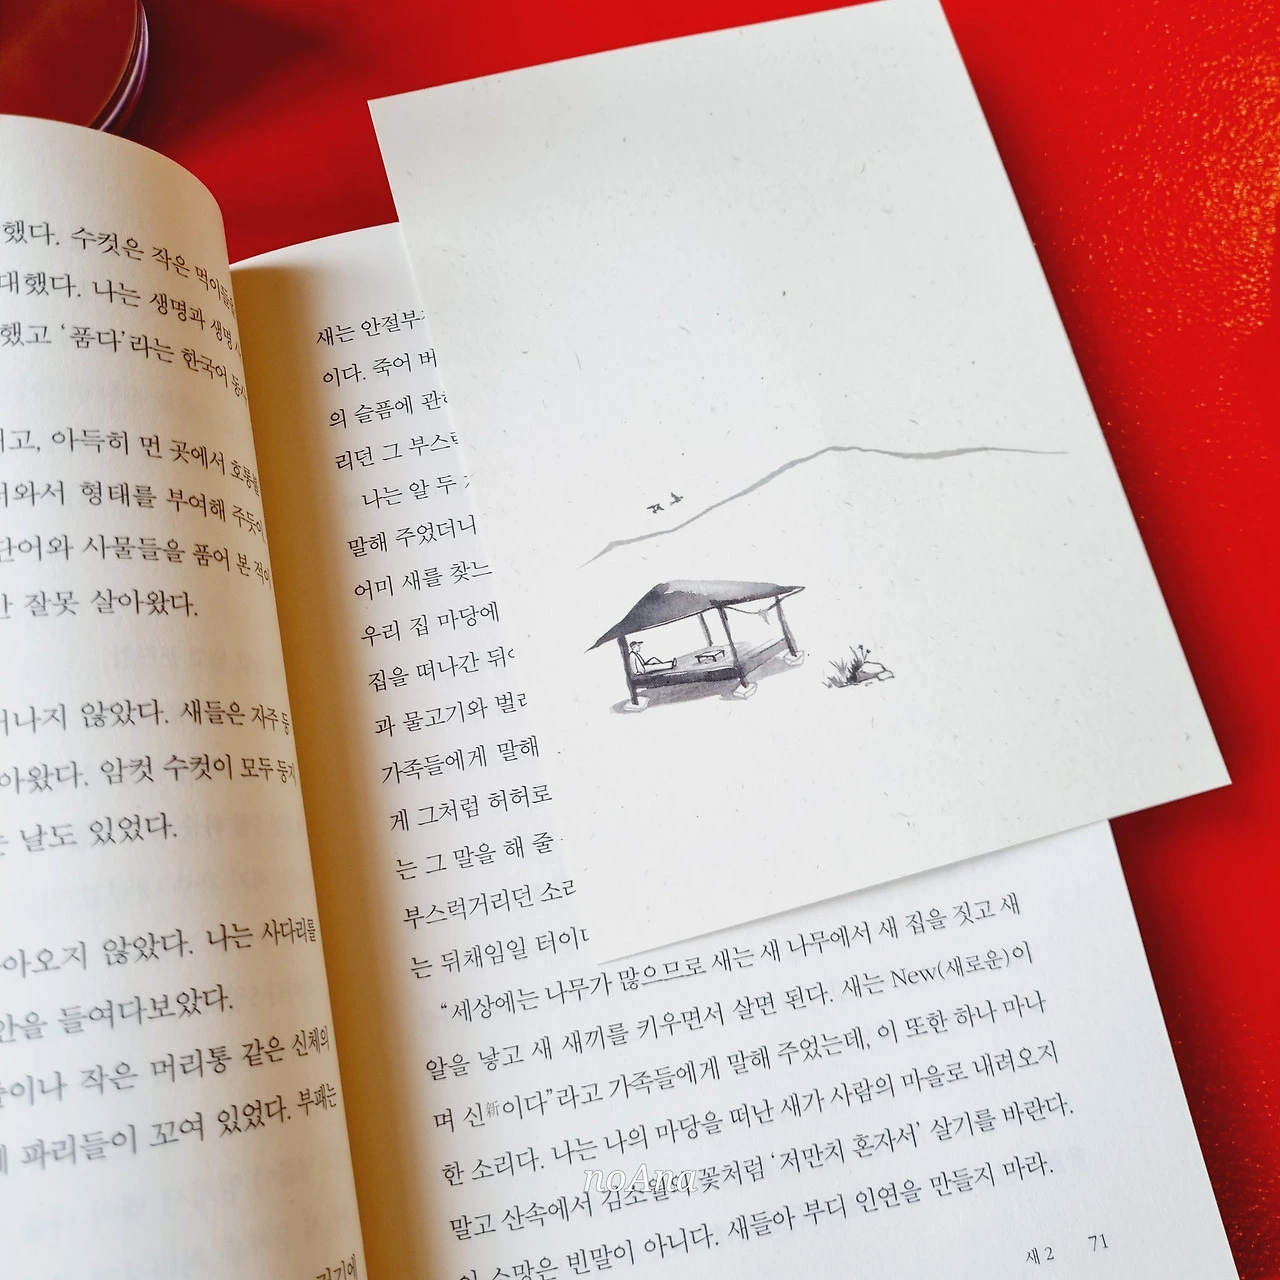 했다. 수컷은 작은 먹이들을
대했다. 나는 생명과 생명
했고 ‘품다’라는 한국어 동사
고, 아득히 먼 곳에서 호롱불
와서 형태를 부여해 주듯이,
단어와 사물들을 품어 본 적이
잘못 살아왔다.
나지 않았다. 새들은 자주 둥
아왔다. 암컷 수컷이 모두 둥지
날도 있었다.
아오지 않았다. 나는 사다리를
안을 들여다보았다.
이나 작은 머리통 같은 신체의
파리들이 꼬여 있었다. 부패는
새는 안절부
이다. 죽어 버
의 슬픔에 관
리던 그 부스
나는 알 두
말해 주었더니
어미 새를 찾느
우리 집 마당에
집을 떠나간 뒤
과 물고기와 벌
가족들에게 말해
게 그처럼 허허로
는 그 말을 해 줄
부스럭거리던 소리
는 뒤채임일 터이다
“세상에는 나무가 많으므로 새는 새 나무에서 새 집을 짓고 새
알을 낳고 새 새끼를 키우면서 살면 된다. 새는 New(새로운)이
며 신新이다”라고 가족들에게 말해 주었는데, 이 또한 하나 마나
한 소리다. 나는 나의 마당을 떠난 새가 사람의 마을로 내려오지
말고 산속에서 김소월의 꽃처럼 ‘저만치 혼자서’ 살기를 바란다.
소망은 빈말이 아니다. 새들아 부디 인연을 만들지 마라.
새 2 71
noAna